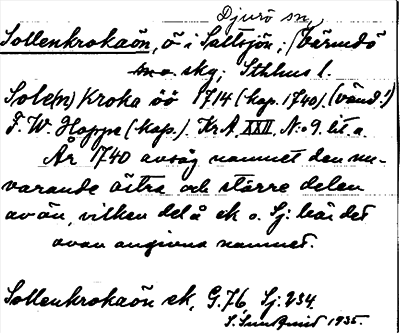 Djurö sn,
Sollenkrokaön, ö i Saltsjön; (Värmdö
sn o. skg; Sthlms l.
Sole(n) Kroka öö 1714 (kop. 1740). (vänd!)
F. W. Hoppe (kop.). Kr.A. XXII, N:o 9. lit a.
År 1740 avsåg namnet den nu-
varande östra och större delen
av ön, vilken del å ek o. Sj: bär det
ovan angivna namnet.
Sollenkrokaön ek, G.76, Sj: 234.
S. Sundqvist 1935.